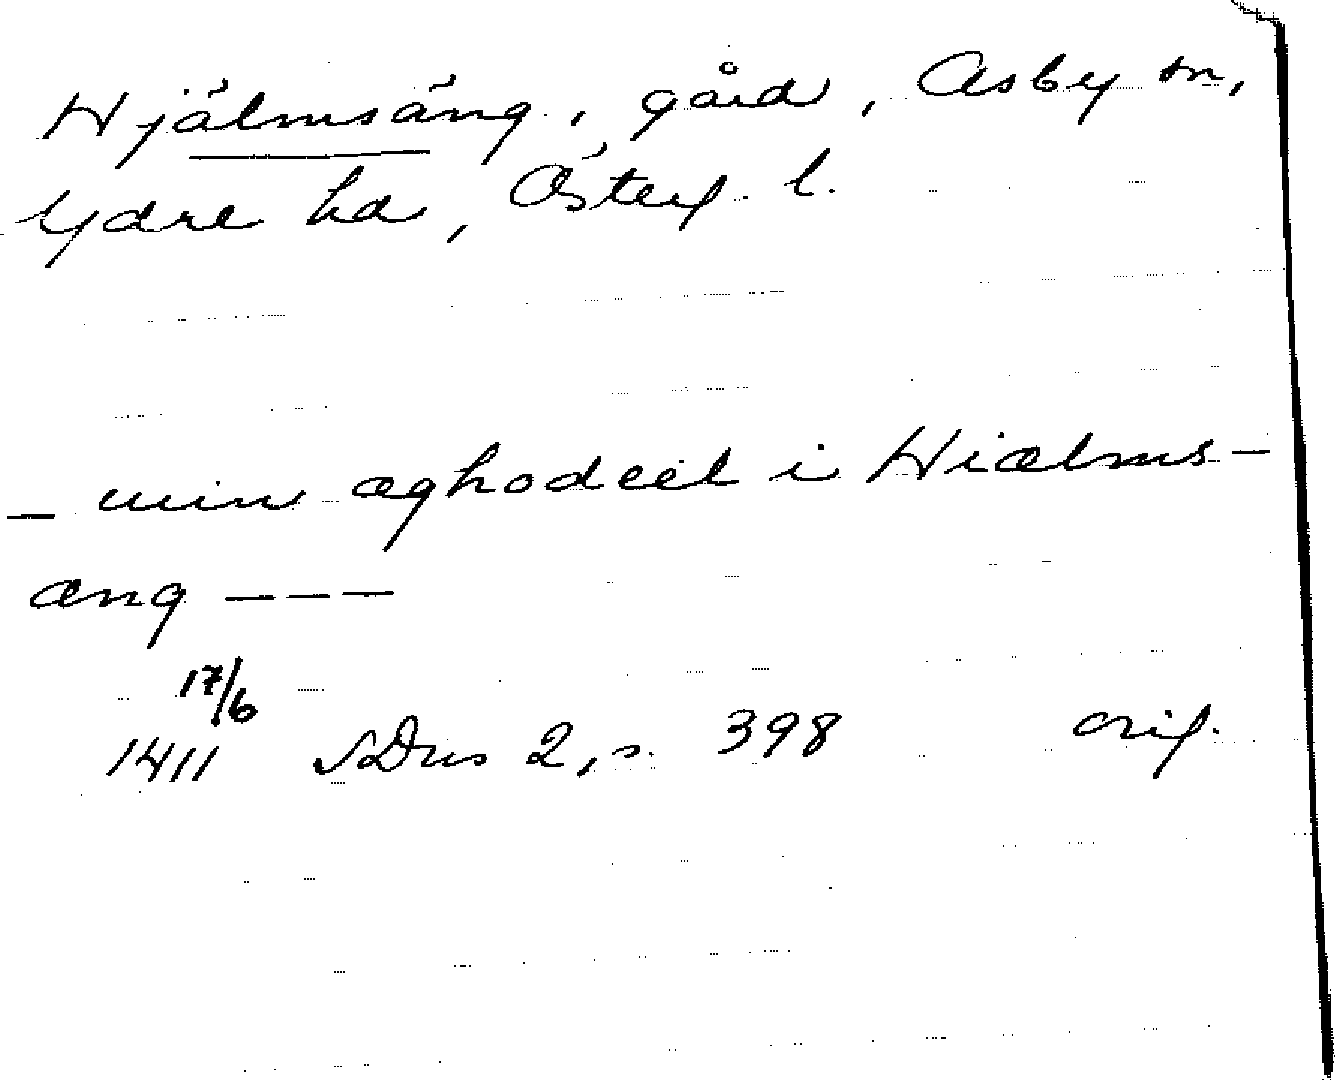 Hjälmsäng, gård, Asby sn,
Ydre hd, Österg. l.
— min æghodeel i Hiælms-
æng ---
17/6
1411 SDns 2, s. 398 orig.